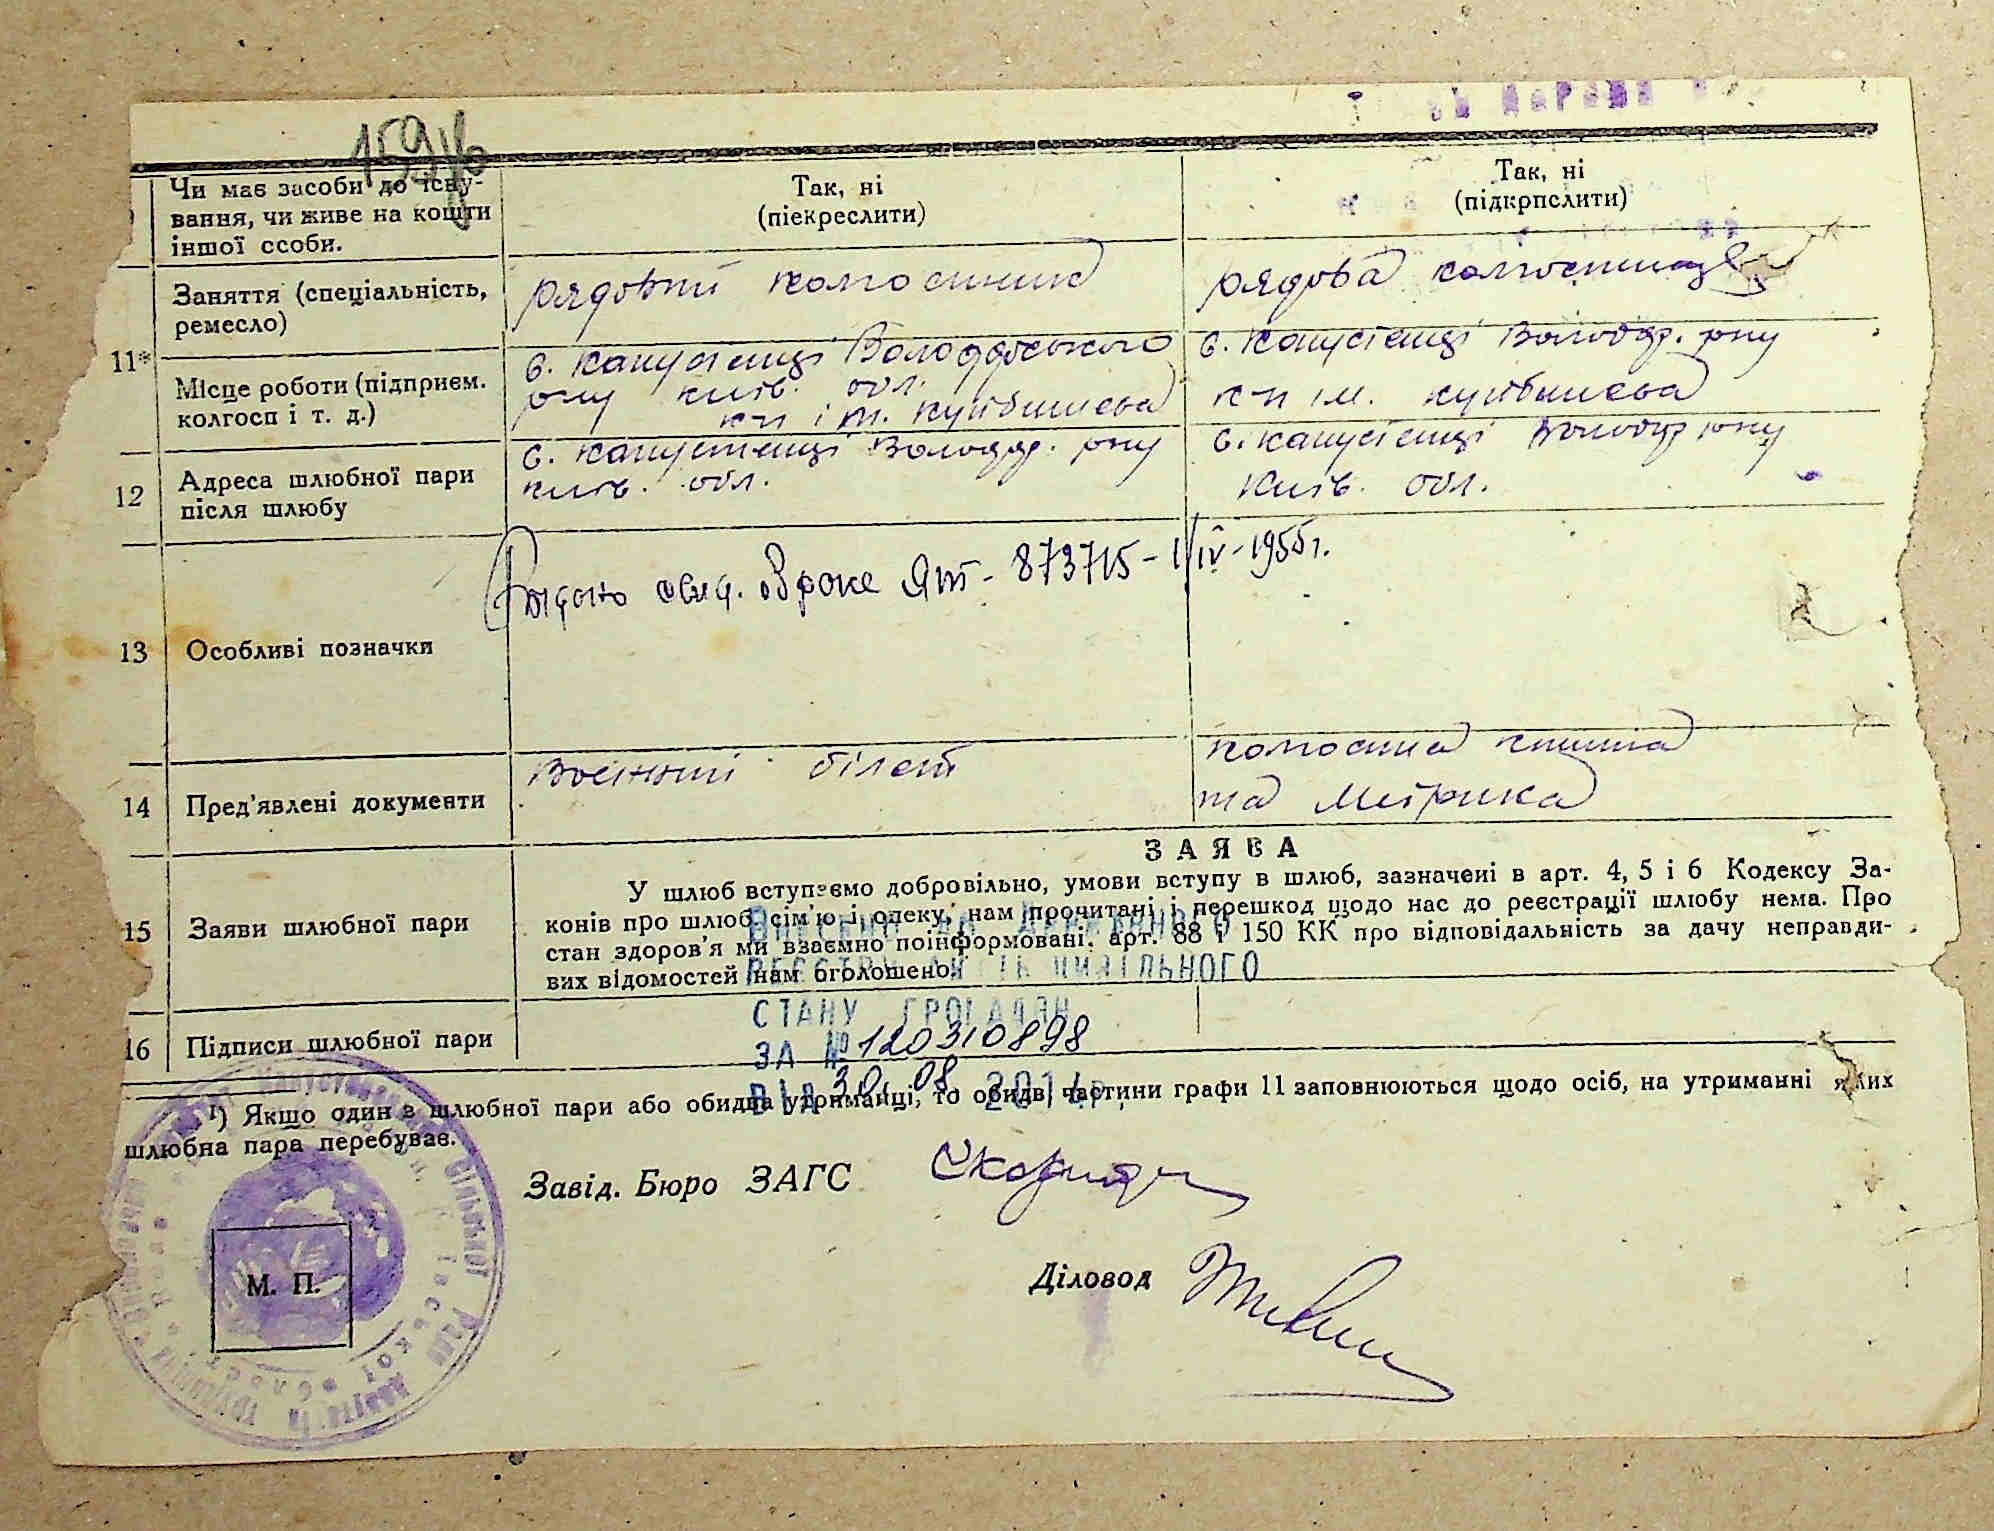 159
Чи має засоби до існу-
вання, чи живе на кошти
іншої ссоби.
Так, ні
(піекреслити)
Так, ні
(підкрпслити)
11*
Заняття (спеціальність,
ремесло)
рядовий колгоспник
рядова колгоспниця
Місце роботи (підприєм.
колгосп і т. д.)
с. Капустинці Володарського
рну київ. обл.
к-п ім. Куйбишева
с. Капустинці Володар. рну
к-п ім. Куйбишева
12
Адреса шлюбної пари
після шлюбу
с. Капустинці Володар. рну
київ. обл.
с. Капустинці Володар рну
Київ. обл.
13
Особливі позначки
Выдано свид. о браке ЯТ - 873715 - 1/IV - 1955г.
14
Пред'явлені документи
Воєнний білет
колгоспна книжка
та метрика
15
Заяви шлюбної пари
ЗАЯВА
У шлюб вступаємо добровільно, умови вступу в шлюб, зазначені в арт. 4, 5 і 6 Кодексу За-
конів про шлюб, сім'ю і опеку, нам прочитані і перешкод щодо нас до реєстрації шлюбу нема. Про
стан здоров'я ми взаємно поінформовані, арт. 88 і 150 КК про відповідальність за дачу неправди-
вих відомостей нам оголошено.
ВНЕСЕНО ДО ДЕРЖАВНОГО
РЕЄСТРУ АКТІВ ЦИВІЛЬНОГО
СТАНУ ГРОМАДЯН
ЗА № 120310898
ВІД 30. 08. 2014р.
16
Підписи шлюбної пари
1) Якщо один з шлюбної пари або обидва утриманці, то обидві частини графи 11 заповнюються щодо осіб, на утриманні яких
шлюбна пара перебуває.
Завід. Бюро ЗАГС
Діловод
М. П.